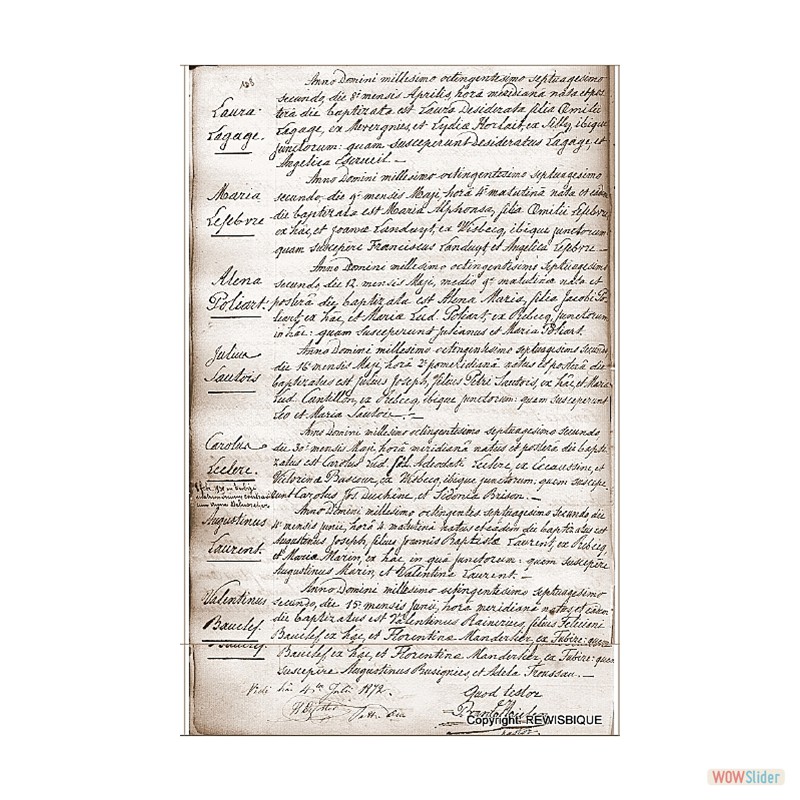 128
Laura
Lagage.
Anno Domini millesimo octingentesimo septuagesimo
secundo, die 8ª mensis Aprilis, horâ meridianâ nata et pos-
terâ die baptizata est Laura Desiderata filia Œmilii
Lagage, ex Mevergnies, et Lydiæ Horlait, ex Silly, ibique
junctorum: quam susceperunt Desideratus Lagage, et
Angelica
Maria
Lefebvre
Anno Domini millesimo octingentesimo septuagesimo
secundo, die 9ª mensis Maji, horâ 4ª matutinâ nata et eâdem
die baptizata est Maria Alphonsa, filia Œmilii Lefebvre,
ex hâc, et Joannæ Landuyt, ex Wisbecq, ibique junctorum
quam suscepere Franciscus Landuyt et Angelica Lefebvre. —
Alena
Poliart.
Anno Domini millesimo octingentesimo septuagesimo
secundo, die 12 mensis Maji, mediâ 9ª matutinâ nata et
posterâ die baptizata est Alena Maria, filia Jacobi Po-
liart ex hâc, et Mariæ Lud. Poliart, ex Rebecq, junctorum
in hâc: quam susceperunt Julianus et Maria Poliart.
Julius
Sautois
Anno Domini millesimo octingentesimo septuagesimo secundo
die 16ª mensis Maji, horâ 2ª pomeridianâ natus et posterâ die
baptizatus est Julius Joseph, filius Petri Sautois, ex hâc, et Mariæ
Lud. Cantillon, ex Rebecq, ibique junctorum: quem susceperunt
Leo et Maria Sautois. —
Carolus
Leclerc.
Anno Domini millesimo octingentesimo septuagesimo secundo
die 30ª mensis Maji, horâ meridianâ natus et posterâ die bapti-
zatus est Carolus Lud. fil. Adeodati Leclerc, ex Ecaussine, et
Victorinæ Bascour, ex Wisbecq, ibique junctorum; quem suscepe-
runt Carolus Jos. Duchine, et Sidonia Brison. —
Augustinus
Laurent.
Anno Domini millesimo octingentesimo septuagesimo secundo die
4ª mensis Junii, horâ 4 matutinâ natus et eâdem die baptizatus est
Augustinus Joseph, filius Joannis Baptistæ Laurent, ex Rebecq,
et Mariæ Marin, ex hâc in quâ junctorum: quem suscepere
Augustinus Marin, et Valentina Laurent. —
Valentinus
Bauclef
Anno Domini millesimo octingentesimo septuagesimo
secundo, die 15ª mensis Junii, horâ meridianâ natus et eâdem
die baptizatus est Valentinus Rainerius, filius Feliciani
Bauclef ex hâc, et Florentinæ Mandertier, ex Tubize: quem
Bauclef
Bauclef ex hâc, et Florentinæ Mandertier, ex Tubize: quem
suscepere Augustinus Busignies, et Adela Troussau. —
Vidi hâc 4ta Julii 1872.
Quod testor
pastor
Copyright REWISBIQUE
WOWSlider